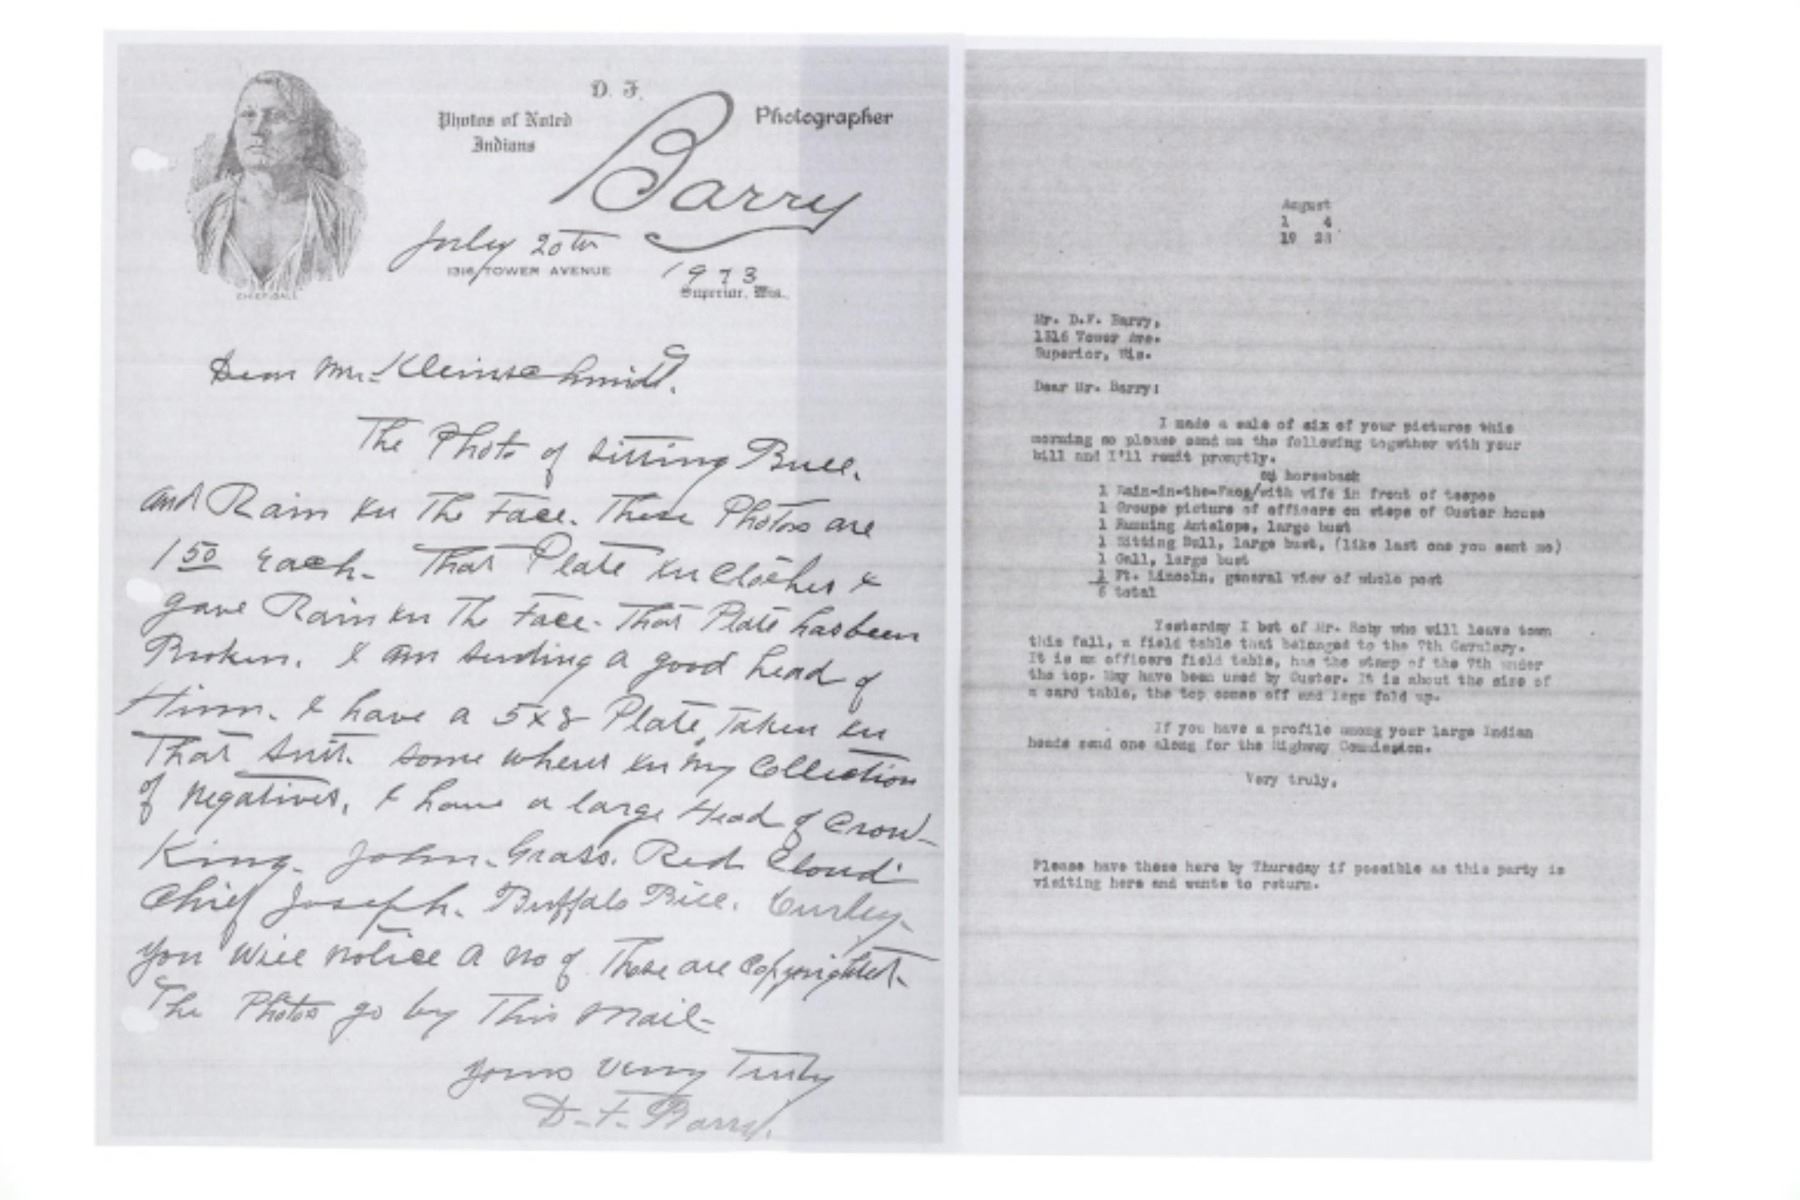 D. F.
Photos of Noted
Indians
Barry
Photographer
CHIEF GALL
July 20th
1316 TOWER AVENUE
1923
Superior, Wis.
Dear Mr. Kleinschmidt.
The Photo of Sitting Bull.
and Rain in The Face. These Photos are
1 50 Each. That Plate in Clothes I
gave Rain in The Face. That Plate has been
Broken. I am sending a good head of
Him. I have a 5x8 Plate, Taken in
That Suit. some where in my Collection
of Negatives. I have a large Head of Crow-
King. John. Grass. Red Cloud
Chief Joseph. Buffalo Bill. Curley.
You Will notice a no of These are Copyrighted.
The Photos go by This Mail-
Yours Very Truly
D-F-Barry.
August
1 4
19 23
Mr. D.F. Barry,
1316 Tower Ave.
Superior, Wis.
Dear Mr. Barry:
I made a sale of six of your pictures this
morning so please send me the following together with your
bill and I'll remit promptly.
on horseback
1 Rain-in-the-Face/with wife in front of teepee
1 Groupe picture of officers on steps of Custer house
1 Running Antelope, large bust
1 Sitting Bull, large bust, (like last one you sent me)
1 Gall, large bust
1 Ft. Lincoln, general view of whole post
6 total
Yesterday I bot of Mr. Roby who will leave town
this fall, a field table that belonged to the 7th Cavalary.
It is an officers field table, has the stamp of the 7th under
the top. May have been used by Custer. It is about the size of
a card table, the top comes off and legs fold up.
If you have a profile among your large Indian
heads send one along for the Highway Commission.
Very truly,
Please have these here by Thursday if possible as this party is
visiting here and wants to return.